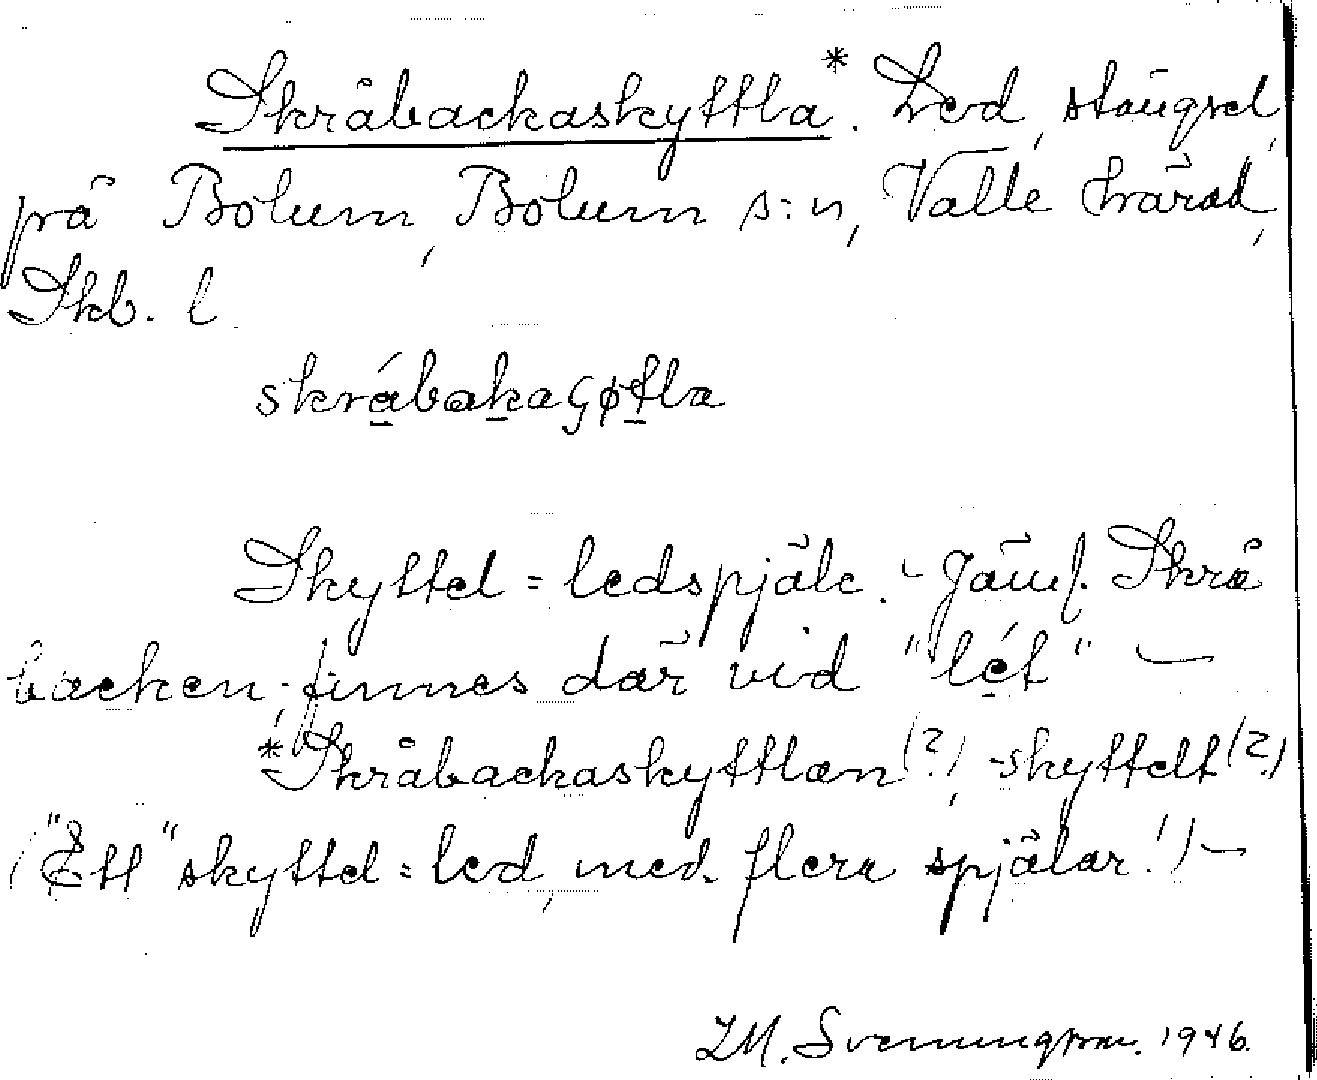 Skråbackaskyttla*. Led, stängsel,
på Bolum, Bolum s:n, Valle härad,
Skb. l
skrábakaçøtla
Skyttel = ledspjäle. - Jämf. Skrå
backen, finnes där vid "lét" —
*Skråbackaskyttlan(?), -skyttelt(?)
("Ett" skyttel = led, med flera spjälar!) —
I.M. Svenungsson. 1946.